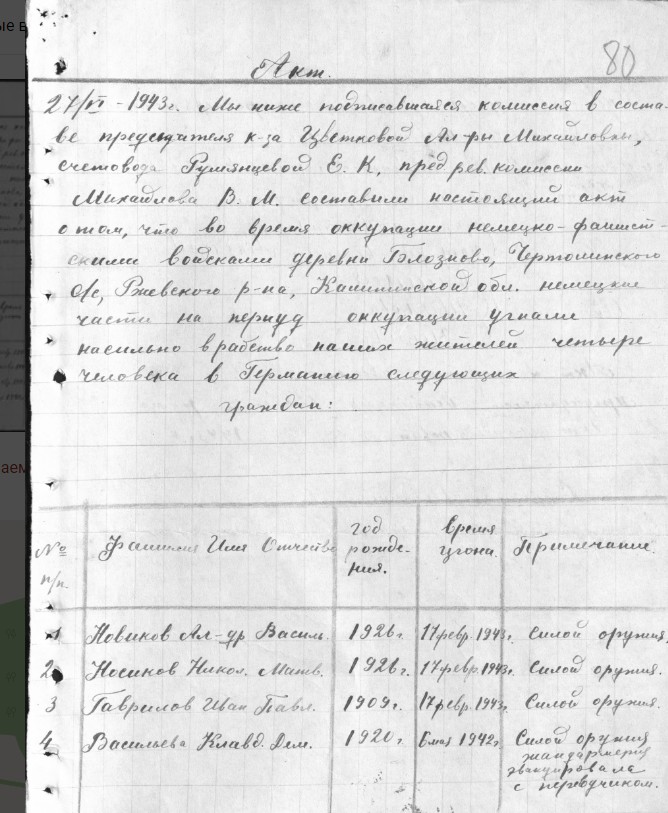 80
Акт.
27/VI - 1943г. Мы ниже подписавшаяся комиссия в соста-
ве председателя к-за Цветковой Ал-ры Михайловны,
счетовода Румянцевой Е. К, пред рев. комиссии
Михайлова В. М. составили настоящий акт
о том, что во время оккупации немецко-фашист-
скими войсками деревни Чертолинского
с/с, Ржевского р-на, Калининской обл. немецкие
части на период оккупации угнали
насильно в рабство наших жителей четыре
человека в Германию следующих
граждан:
№ п/п. Фамилия Имя Отчество год рожде-ния. Время угона. Примечание.
1 Новиков Ал-др Василь. 1926г. 17февр. 1943г. Силой оружия.
2 Носиков Никол. Матв. 1926г. 17февр. 1943г. Силой оружия.
3 Гаврилов Иван Павл. 1909г. 17февр. 1943г. Силой оружия.
4 Васильева Клавд. Дем. 1920г. 6 мая 1942г. Силой оружия
жандармерия
эвакуировала
с переводчиком.